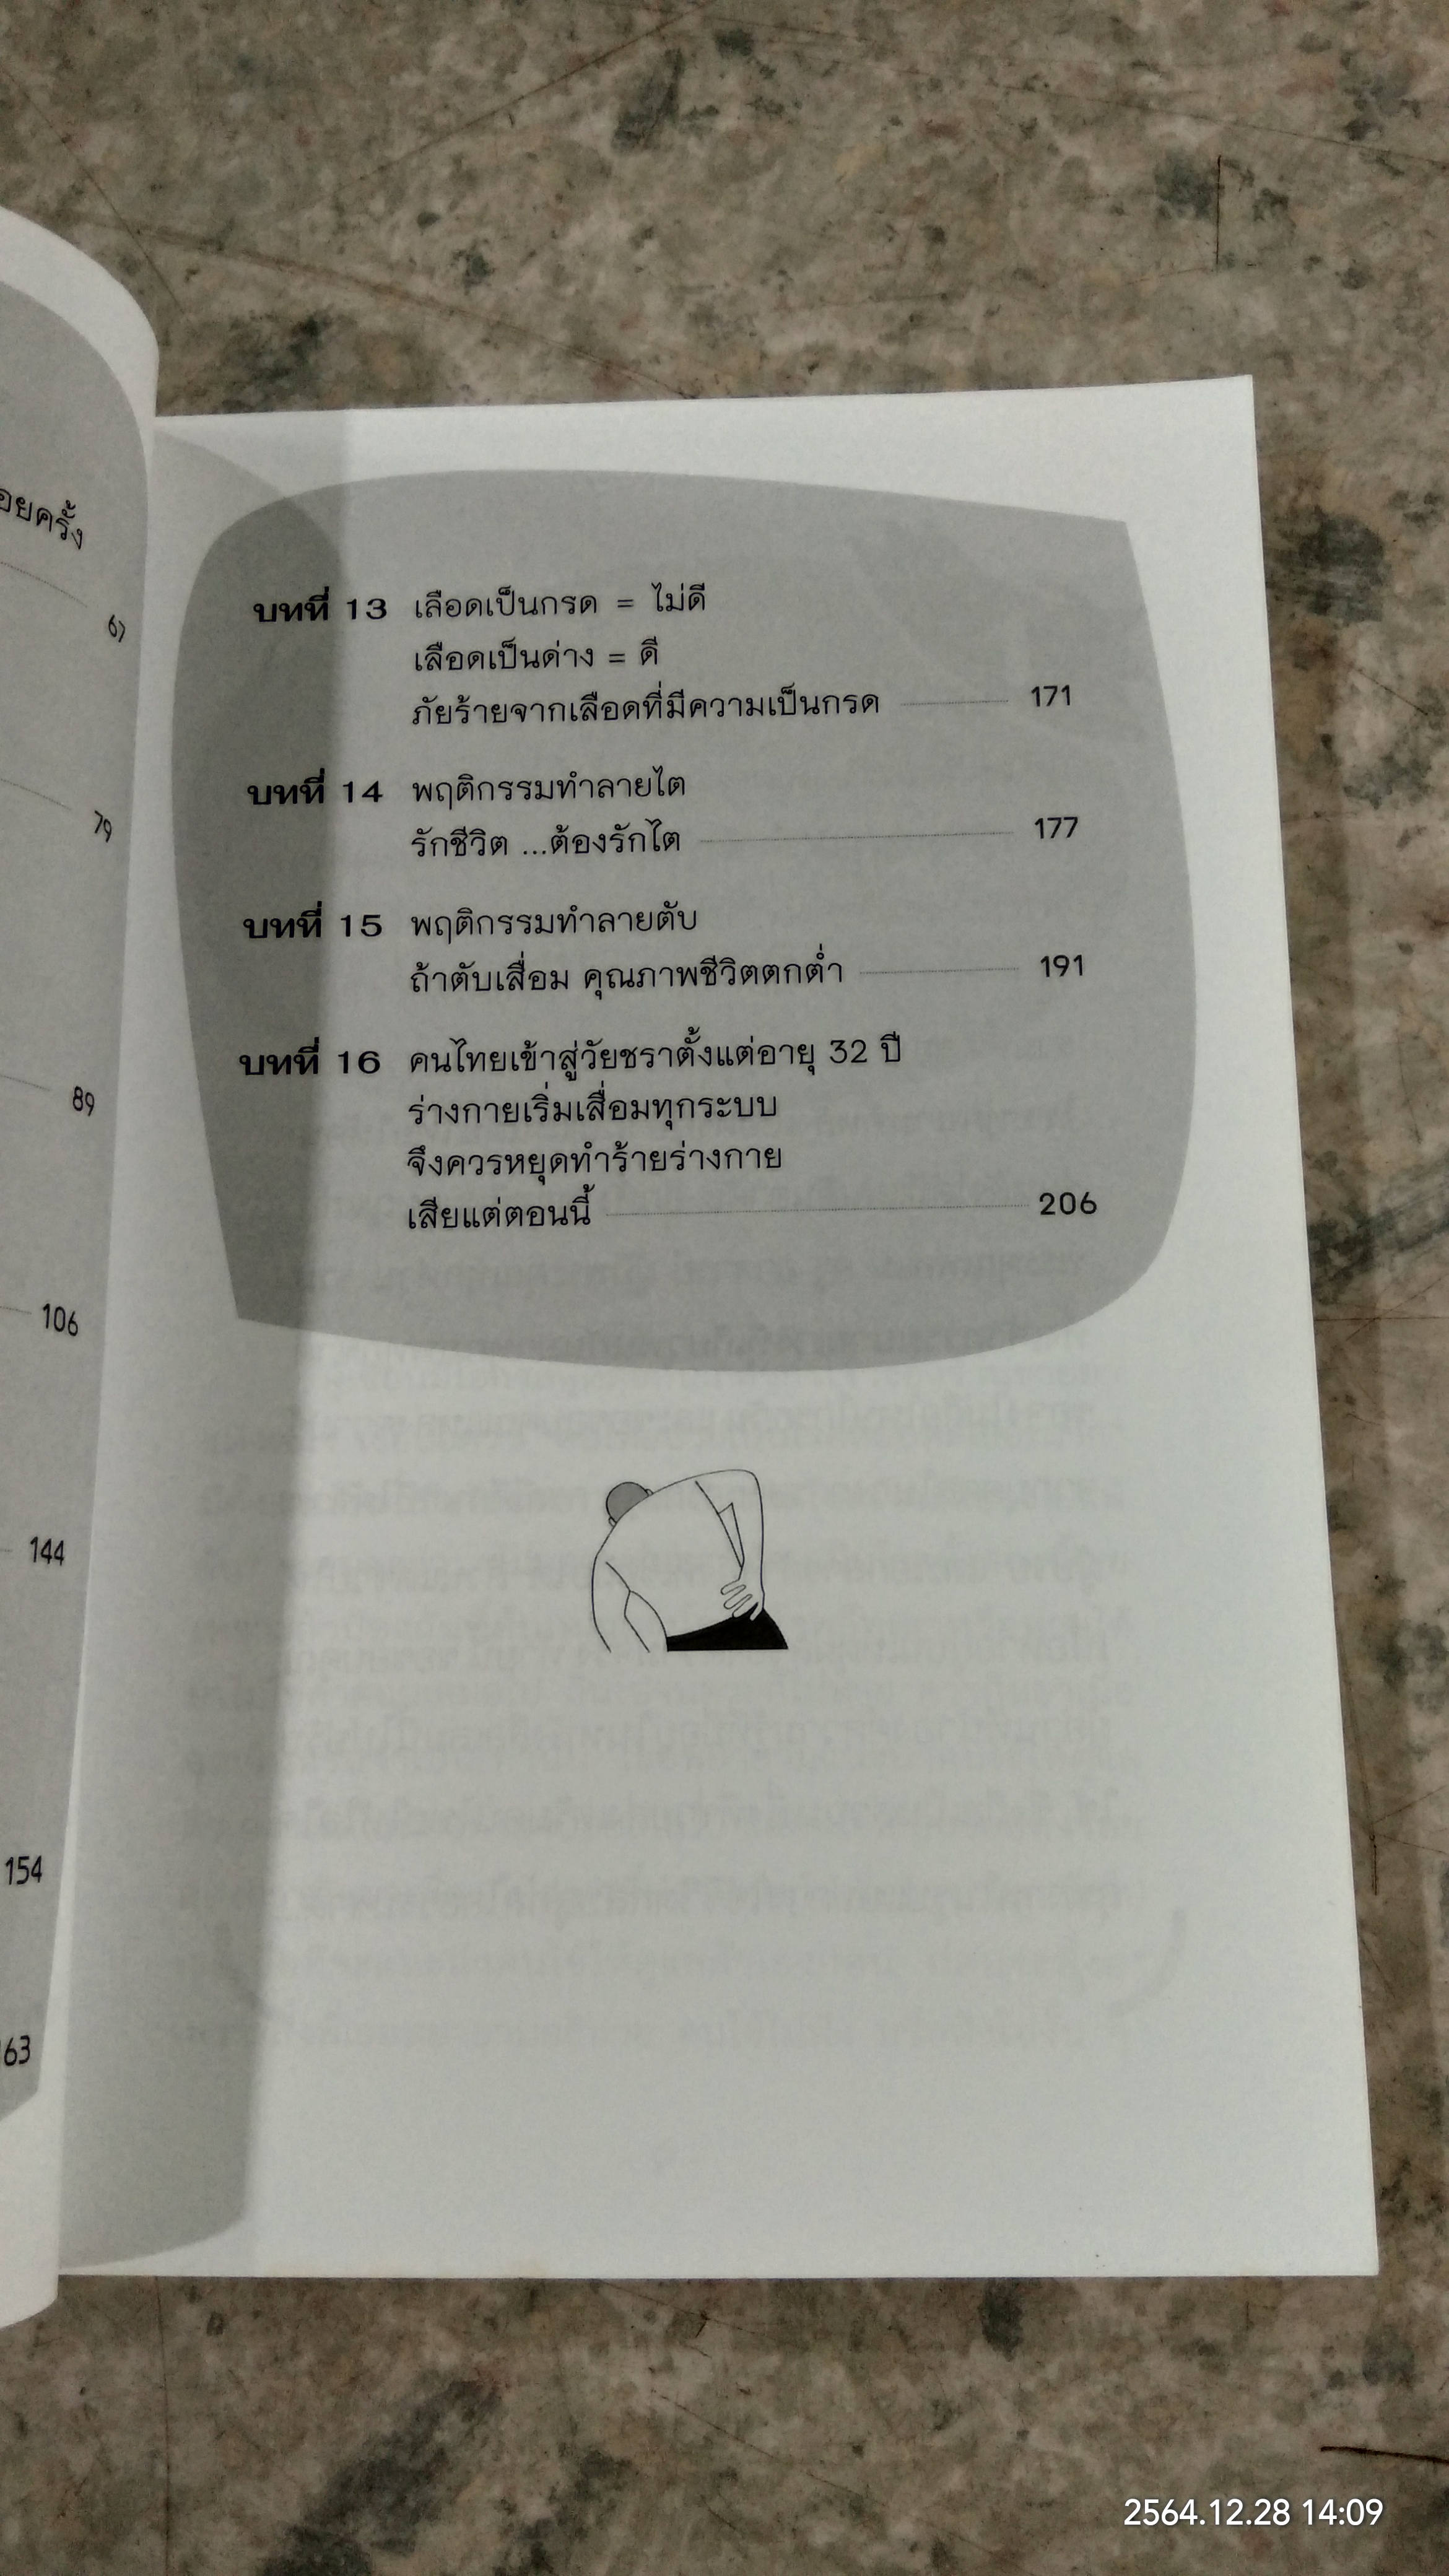 อยครั้ง
67
79
89
106
144
154
163
บทที่ 13 เลือดเป็นกรด = ไม่ดี
เลือดเป็นด่าง = ดี
ภัยร้ายจากเลือดที่มีความเป็นกรด 171
บทที่ 14 พฤติกรรมทำลายไต
รักชีวิต ...ต้องรักไต 177
บทที่ 15 พฤติกรรมทำลายตับ
ถ้าตับเสื่อม คุณภาพชีวิตตกต่ำ 191
บทที่ 16 คนไทยเข้าสู่วัยชราตั้งแต่อายุ 32 ปี
ร่างกายเริ่มเสื่อมทุกระบบ
จึงควรหยุดทำร้ายร่างกาย
เสียแต่ตอนนี้ 206
2564.12.28 14:09